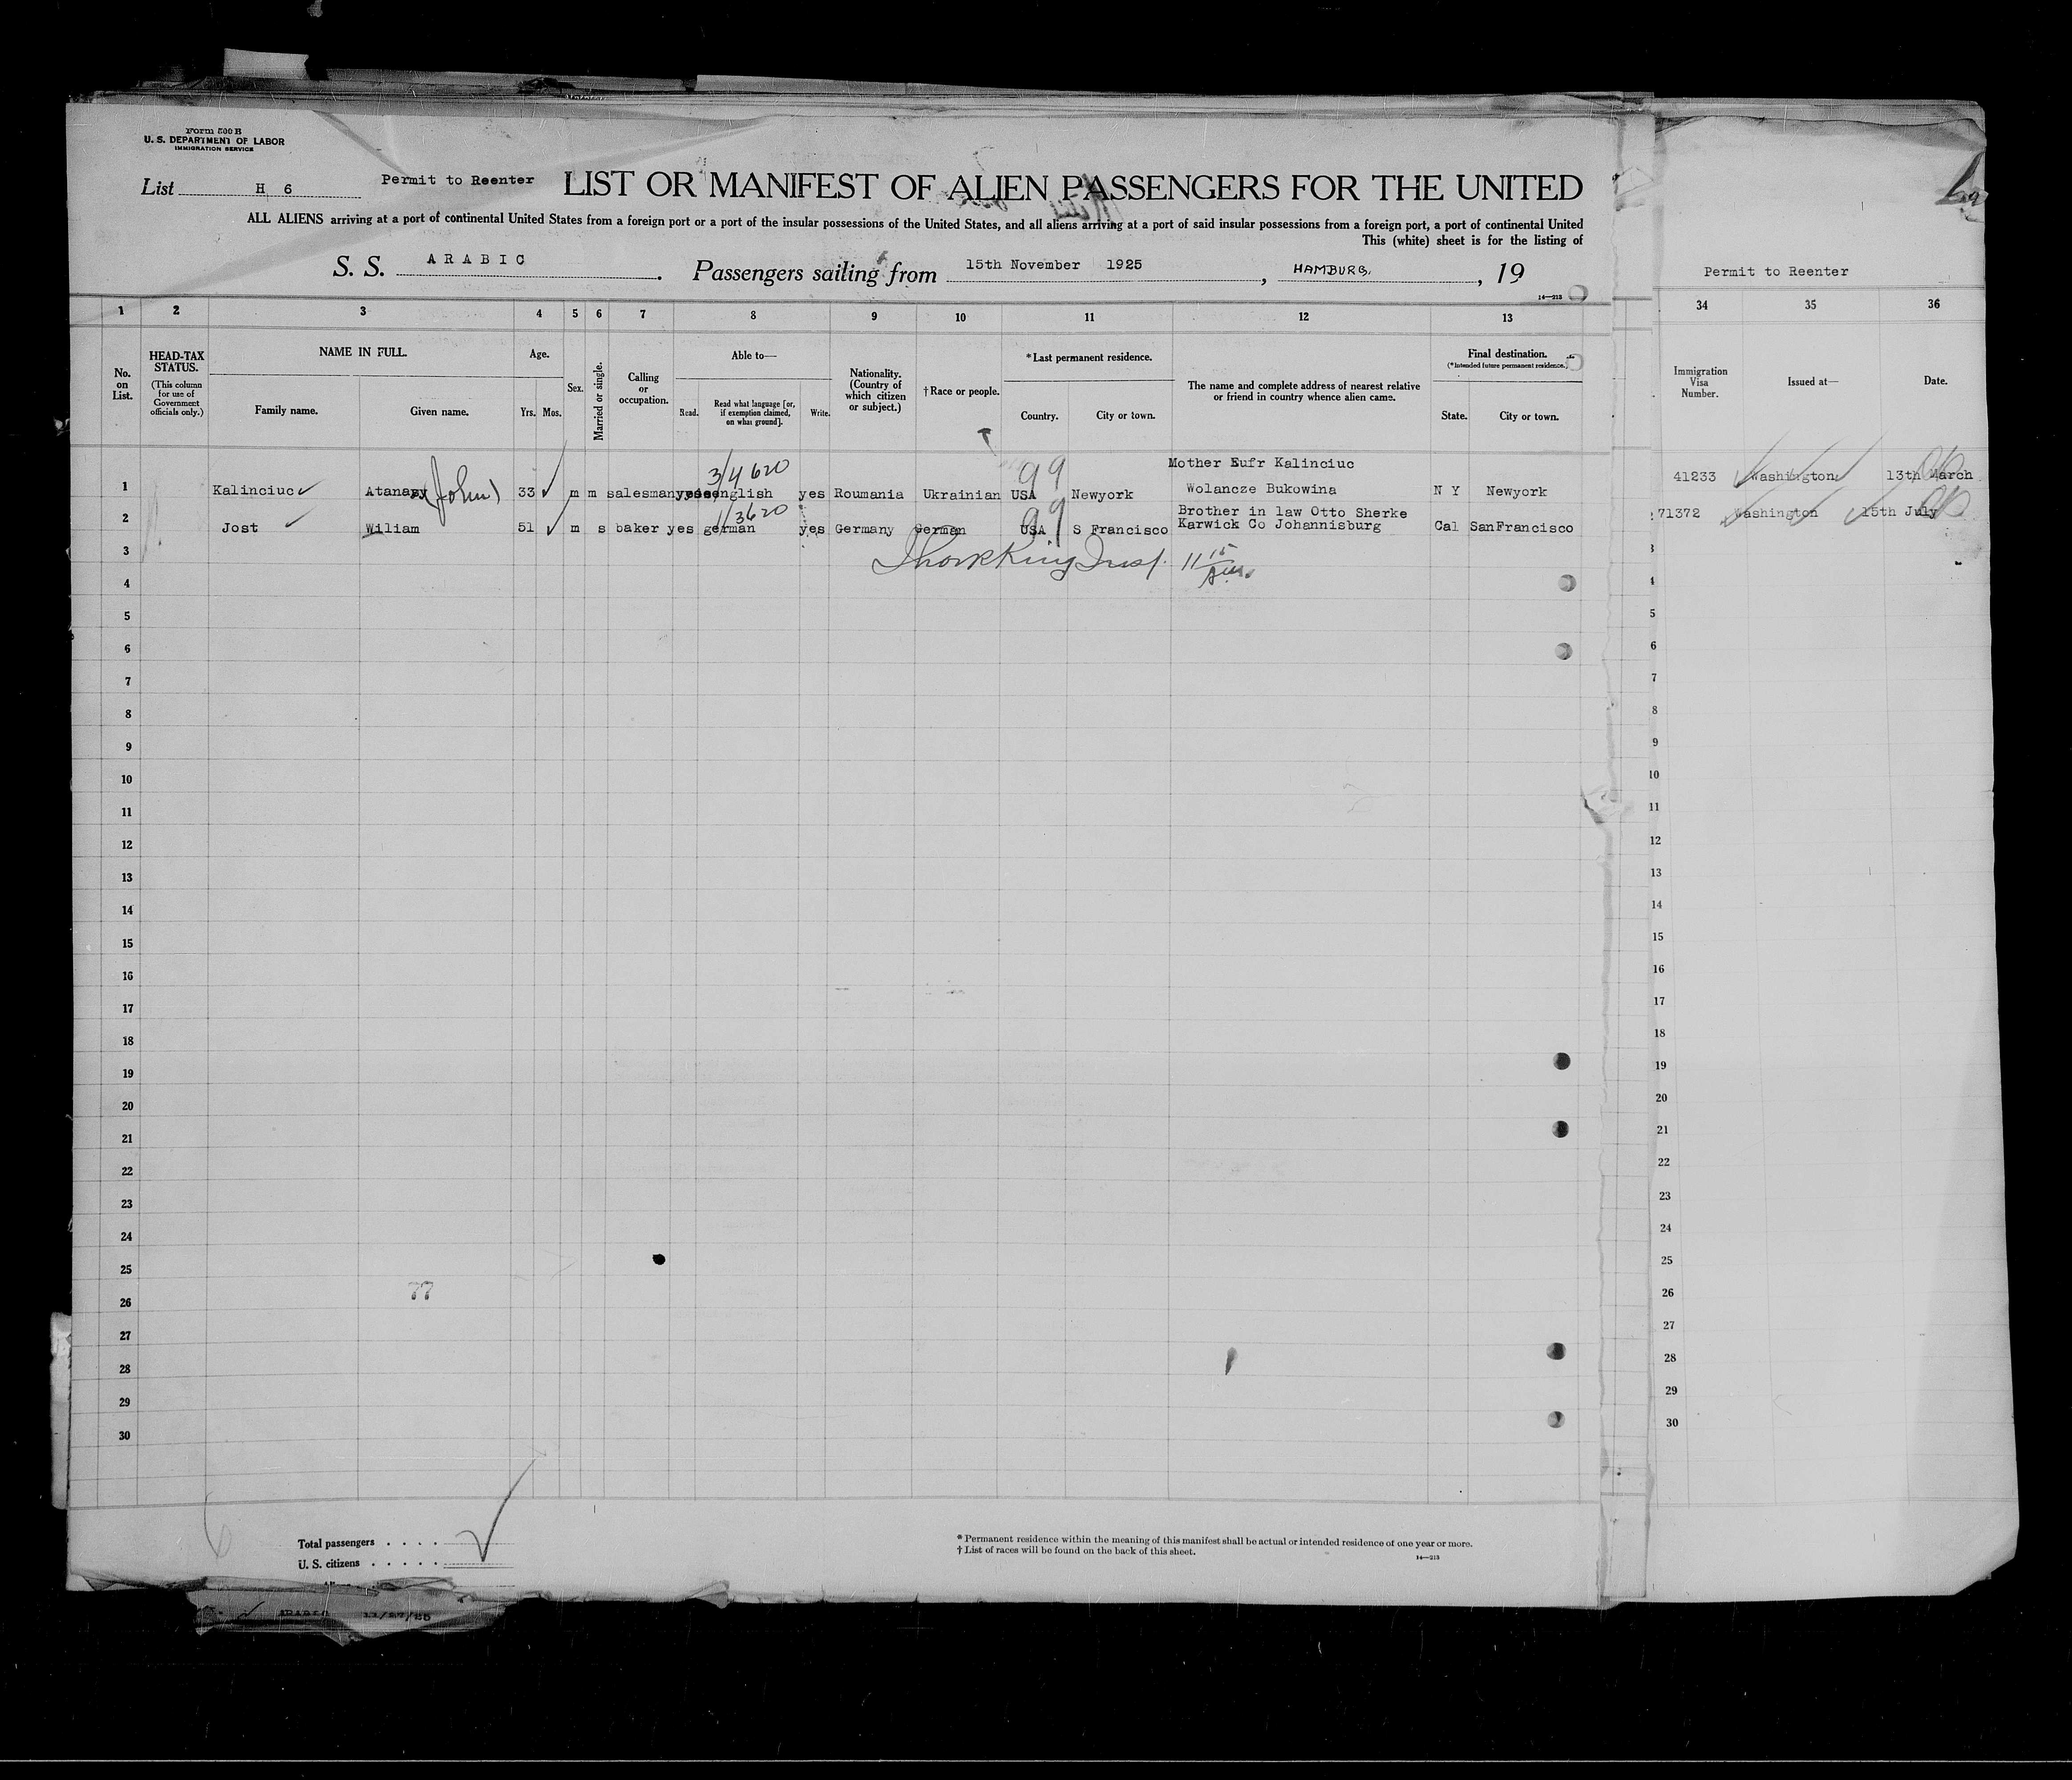 Form 500 B
U. S. DEPARTMENT OF LABOR
IMMIGRATION SERVICE
List H 6 Permit to Reenter LIST OR MANIFEST OF ALIEN PASSENGERS FOR THE UNITED
ALL ALIENS arriving at a port of continental United States from a foreign port or a port of the insular possessions of the United States, and all aliens arriving at a port of said insular possessions from a foreign port, a port of continental United
This (white) sheet is for the listing of
S. S. ARABIC. Passengers sailing from 15th November 1925, HAMBURG, 19
14—213
Permit to Reenter
1 2 3 4 5 6 7 8 9 10 11 12 13 34 35 36
No. on List.
HEAD-TAX STATUS.
(This column for use of Government officials only.)
NAME IN FULL.
Family name. Given name.
Age.
Yrs. Mos.
Sex.
Married or single.
Calling or occupation.
Able to—
Read. Read what language [or, if exemption claimed, on what ground]. Write.
Nationality. (Country of which citizen or subject.)
†Race or people.
*Last permanent residence.
Country. City or town.
The name and complete address of nearest relative or friend in country whence alien came.
Final destination.
(*Intended future permanent residence.)
State. City or town.
Immigration Visa Number.
Issued at—
Date.
3/4 620 99 Mother Eufr Kalinciuc
1 Kalinciuc Atanazy (John) 33 m m salesman yes english yes Roumania Ukrainian USA Newyork Wolancze Bukowina N Y Newyork 41233 Washington 13th March
1/3620 99 Brother in law Otto Sherke
2 Jost Wiliam 51 m s baker yes german yes Germany German USA S Francisco Karwick Co Johannisburg Cal SanFrancisco 71372 Washington 15th July
3 Insp. 11 15 Am. 3
4 4
5 5
6 6
7 7
8 8
9 9
10 10
11 11
12 12
13 13
14 14
15 15
16 16
17 17
18 18
19 19
20 20
21 21
22 22
23 23
24 24
25 25
77
26 26
27 27
28 28
29 29
30 30
Total passengers . . . .
U. S. citizens . . . . .
* Permanent residence within the meaning of this manifest shall be actual or intended residence of one year or more.
† List of races will be found on the back of this sheet.
14—213
ARABIC 11/27/25